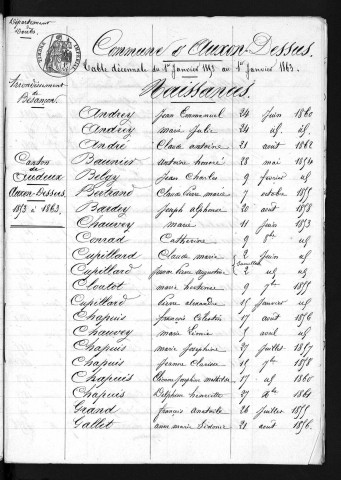 Département
Doubs.
Commune d'Auxon-Dessus.
Table décennale du 1er Janvier 1853 au 1er Janvier 1863.
Arrondissement
de
Besançon.
Naissances.
Canton
de
Audeux
Auxon-Dessus.
1853 à 1863.
Andrey Jean Emmanuel 24 Juin 1860
Andrey marie Julie 24 id. id.
André Claude antoine 21 août 1862
Baunier antoine honoré 28 mai 1854
Belgy Jean Charles 9 février id
Bertrand Claude Pierre marie 7 octobre 1855
Bardey Joseph alphonse 20 août 1858
Chauvey marie 11 juin 1853
Conrad Catherine 9 8bre id
Cupillard Claude marie 2 Juin id
Cupillard Jeanne Pierre augustine 2 id id
Cloutot marie hortense 9 7bre 1855
Cupillard Pierre alexandre 15 Janvier id
Chapuis françois Célestin 17 août 1856
Chauvey marie 5 avril id
Chapuis marie Joséphine 27 Juillet 1857
Chapuis Jeanne Clarisse 15 7bre 1858
Chapuis Joséphine mathilde 17 id 1860
Chapuis Delphine henriette 27 Xbre 1861
Grand francois anatole 26 Juillet 1855
Gallet anne marie 21 août 1856.